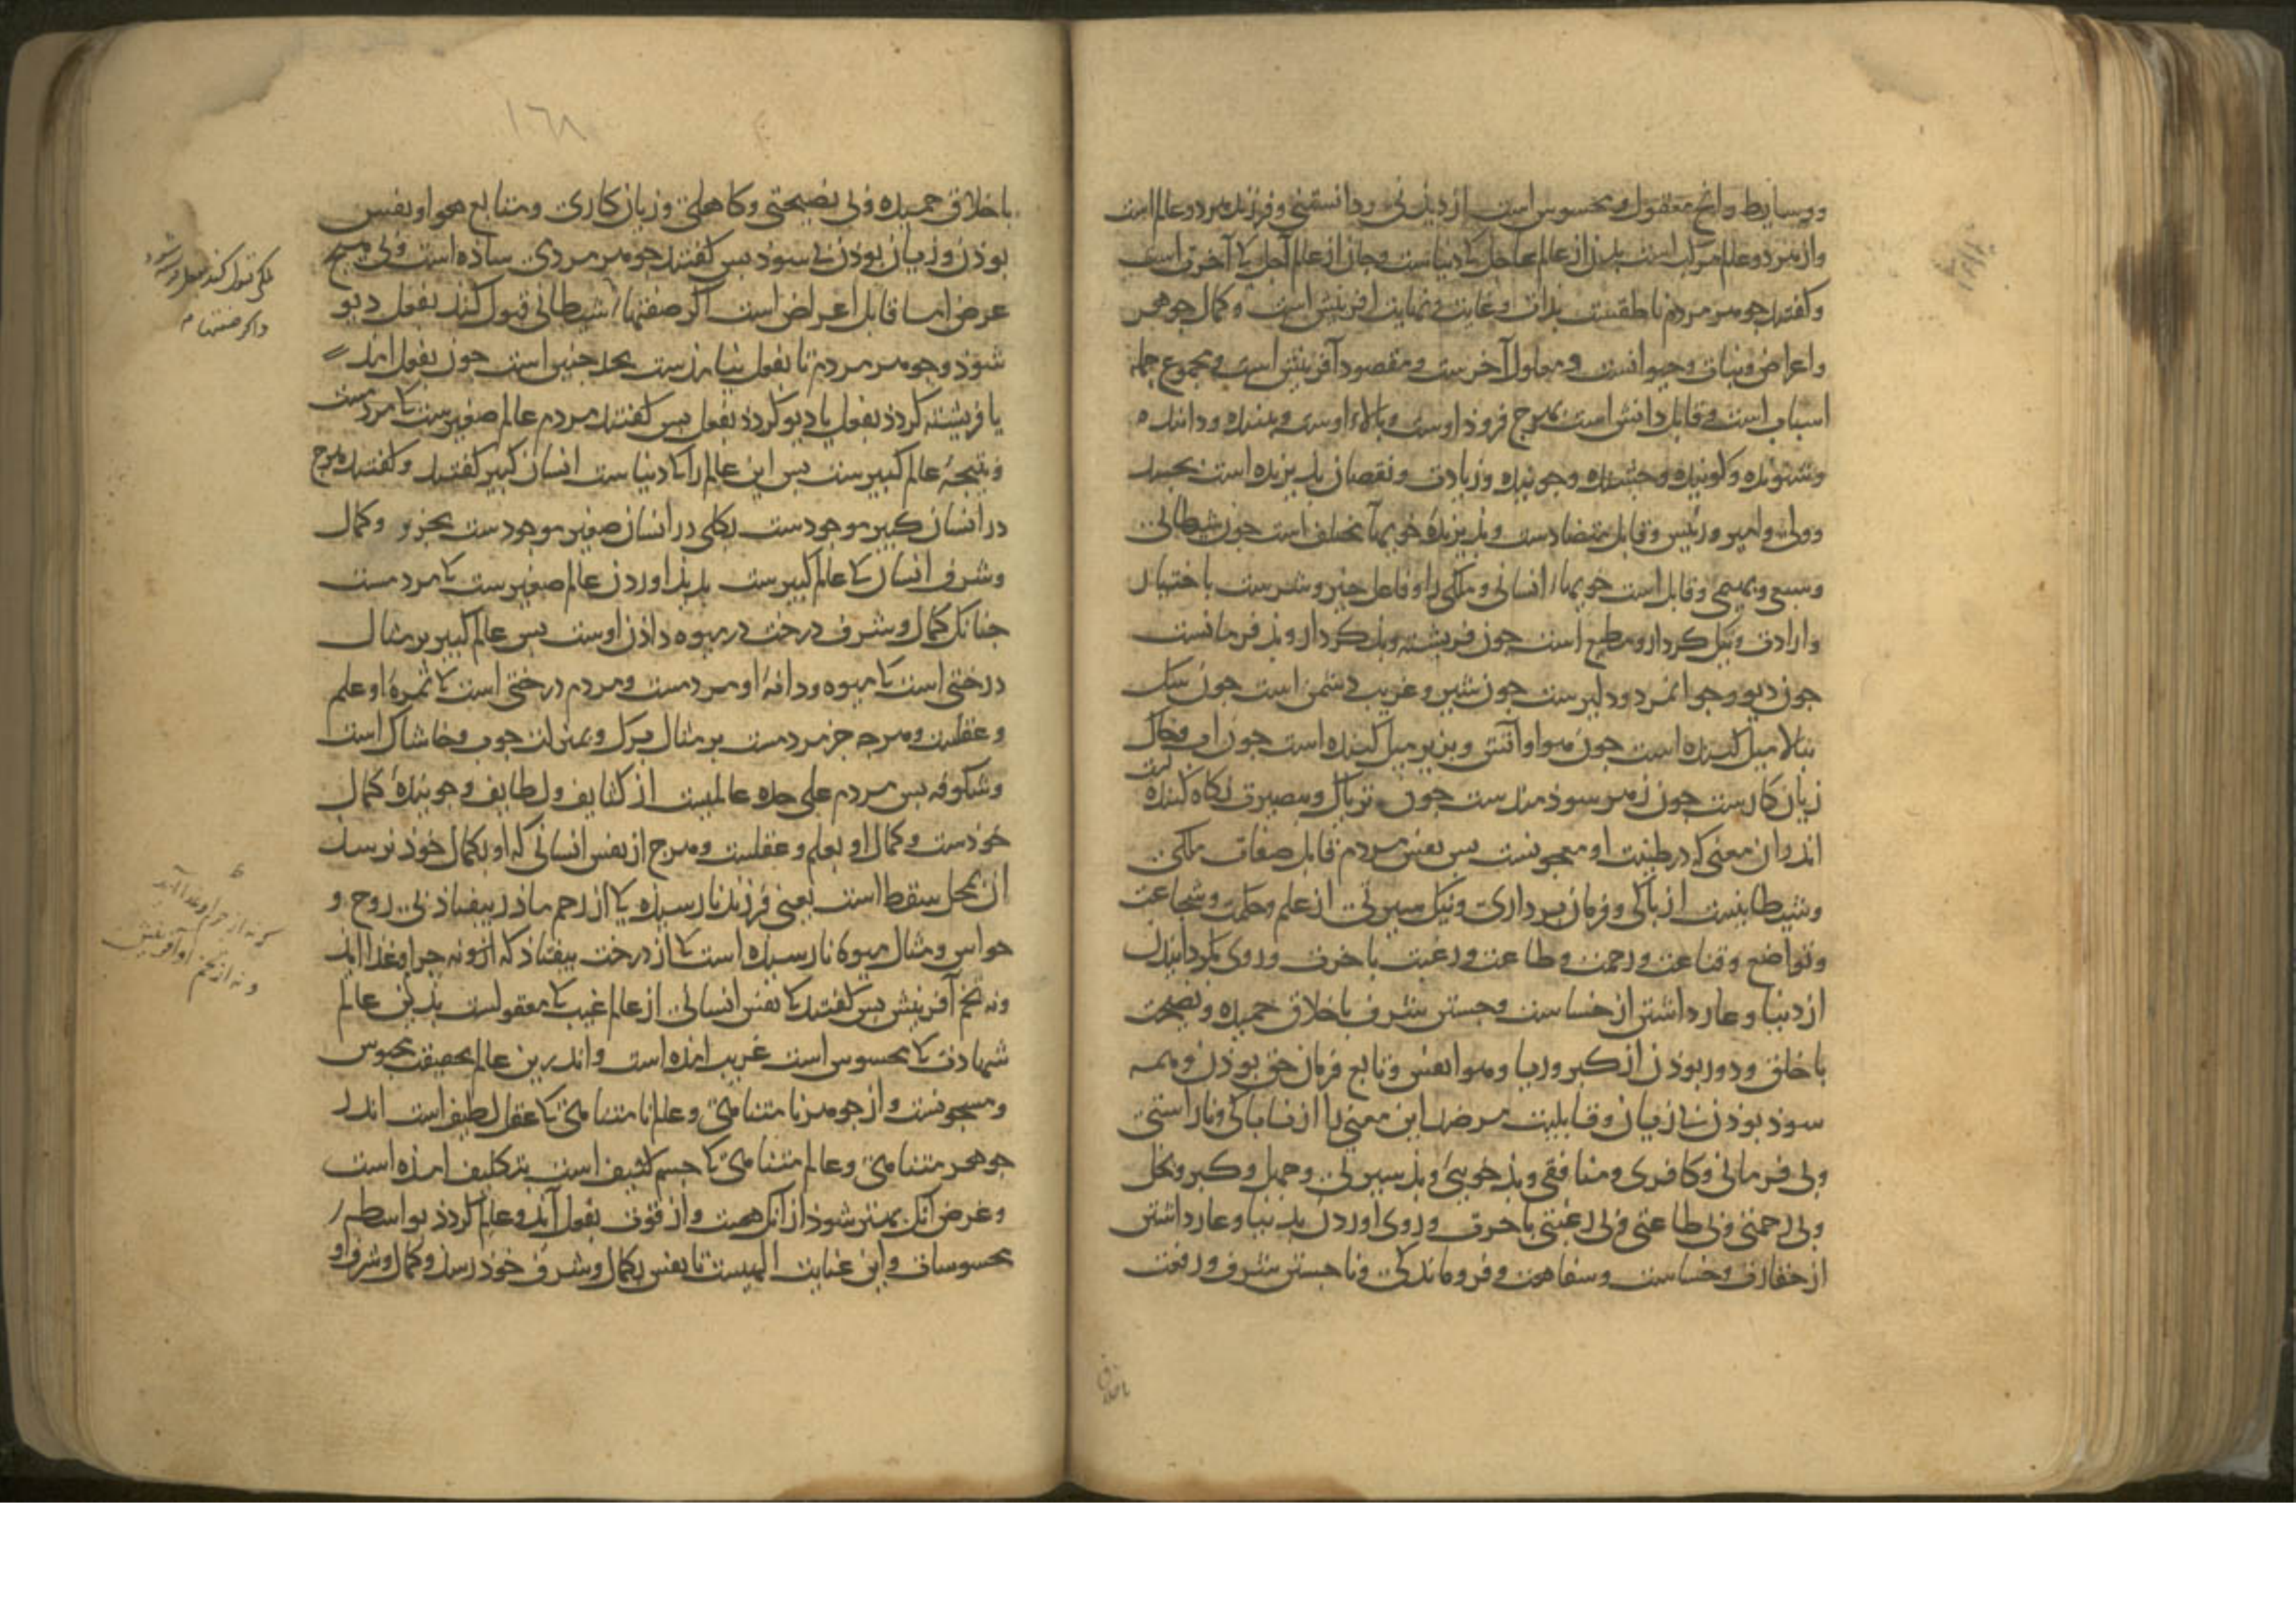 ووسایط وانج معقول و محسوس است از دیدنی ودانستنی وفرزند هر دو عالم است
واز هر دو عالم مرکب است بدن از عالم عاجل کا دنیاست وجان از عالم آجل کا آخرت است
وکفتند جوهر مردم ناطقست بذات وغایت ونهایت افرینش است وکمال جوهر
واعراض ونبات وحیوانست ومعلول آخرست ومقصود آفرینش است ومجموع جمله
اسباب است وقابل دانش است بهرج فروذ اوست وبالاء اوست وبیننده وداننده
وشنونده وکوینده وجشنده وجوینده وزیادت ونقصان پذیرنده است بجسد
ووالی وامیر ورئیس وقابل متضادست وپذیرندهٔ خویهاء مختلف است جون شیطانی
وسبعی وبهیمی وقابل است خویهاء انسانی وملکی را وفاعل خیر وشرست باختیار
وارادت ونیک کردار ومطیع است جون فریشته وبد کردار وبذ فرمانست
جون دیو وجوانمرد ودلیرست جون شیر وغریب دشمن است جون سک
ببالا میل کننده است جون هوا وآتش وبزیر میل کننده است جون اب وخاک
زیان کارست جون زهر سوذمندست جون تریاک وبصیرت نکاه کننده
اند وان معنی که در طینت او معجونست بس نفس مردم قابل صفات ملکی
وشیطانیست از پاکی وفرمان برداری ونیک سیرتی از علم وحکمت وشجاعت
وتواضع وقناعت ورحمت وطاعت ورغبت باخرت وروی بکردانیدن
از دنیا وعار داشتن از خساست وجستن شرف باخلاق حمیده ونصیحت
با خلق ودور بوذن از کبر وریا وهوا نفس وتابع فرمان حق بوذن وهمه
سوذ بوذن بی زیان وقابلیت مر ضد این معنی را از ناپاکی وناراستی
وبی فرمانی وکافری ومنافقی وبذ خویی وبذ سیرتی وجهل وکبر وبخل
وبی رحمتی وبی طاعتی وبی رغبتی باخرت وروی اوردن بدنیا وعار داشتن
از حقارت وخساست وسفاهت وفروماندکی وناجستن شرف ورفعت
باخلاق
١٦٨
باخلاق حمیده وبی نصیحتی وکاهلی وزیان کاری ومتابع هوا ونفس
بوذن وزیان بوذن بی سوذ بس کفتند جوهر مردی ساده است وبی هیج
عرض اما قابل اعراض است اکر صفتهاء شیطانی قبول کند بفعل دیو
شوذ وجوهر مردم تا بفعل نیامذست بحد جنین است جون بفعل امذ
یا فریشته کردذ بفعل یا دیو کردذ بفعل بس کفتند مردم عالم صغیرست کا مردمست
ونتیجهٔ عالم کبیرست بس این عالم را کا دنیاست انسان کبیر کفتند وکفتند هرج
در انسان کبیر موجودست بکلی در انسان صغیر موجودست بجزو وکمال
وشرف انسان کا عالم کبیرست بدید اوردن عالم صغیرست کا مردمست
جنانک کمال وشرف درخت در میوه داذن اوست بس عالم کبیر بر مثال
درختی است کا میوه ودانهٔ او مردمست ومردم درختی است کا ثمرهٔ او علم
وعقلست وهرجه جز مردمست بر مثال برک وبمنزلت جوب وخاشاک است
وشکوفه بس مردم علی حده عالمیست از کثایف ولطایف وجویندهٔ کمال
خوذست وکمال او بعلم وعقلست وهرج از نفس انسانی که او بکمال خوذ نرسد
ان بمحل سقط است یعنی فرزند نارسیده کا از رحم ماذر بیفتاذ بی روح و
حواس ومثال میوهٔ نارسیده است کا از درخت بیفتاذ که ازو نه جرا وغذا اید
ونه تخم آفرینش بس کفتند کا نفس انسانی از عالم غیب کا معقولست بدین عالم
شهادت کا محسوس است غریب امذه است واندرین عالم بحقیقت محبوس
ومسجونست واز جوهر نامتناهی وعالم نامتناهی کا عقل لطیف است اندر
جوهر متناهی وعالم متناهی کا جسم کثیف است بتکلیف امذه است
وغرض آنک بهتر شوذ از انک هست واز قوت بفعل آید وعالم کردذ بواسطهء
محسوسات واین عنایت الهیست تا نفس بکمال وشرف خوذ رسذ وکمال وشرف او
ملکی قبول کند بفعل فرشته شود
واکر صفتهاء
که نه از جرا وغذا آید
ونه از تخم او آفرینش